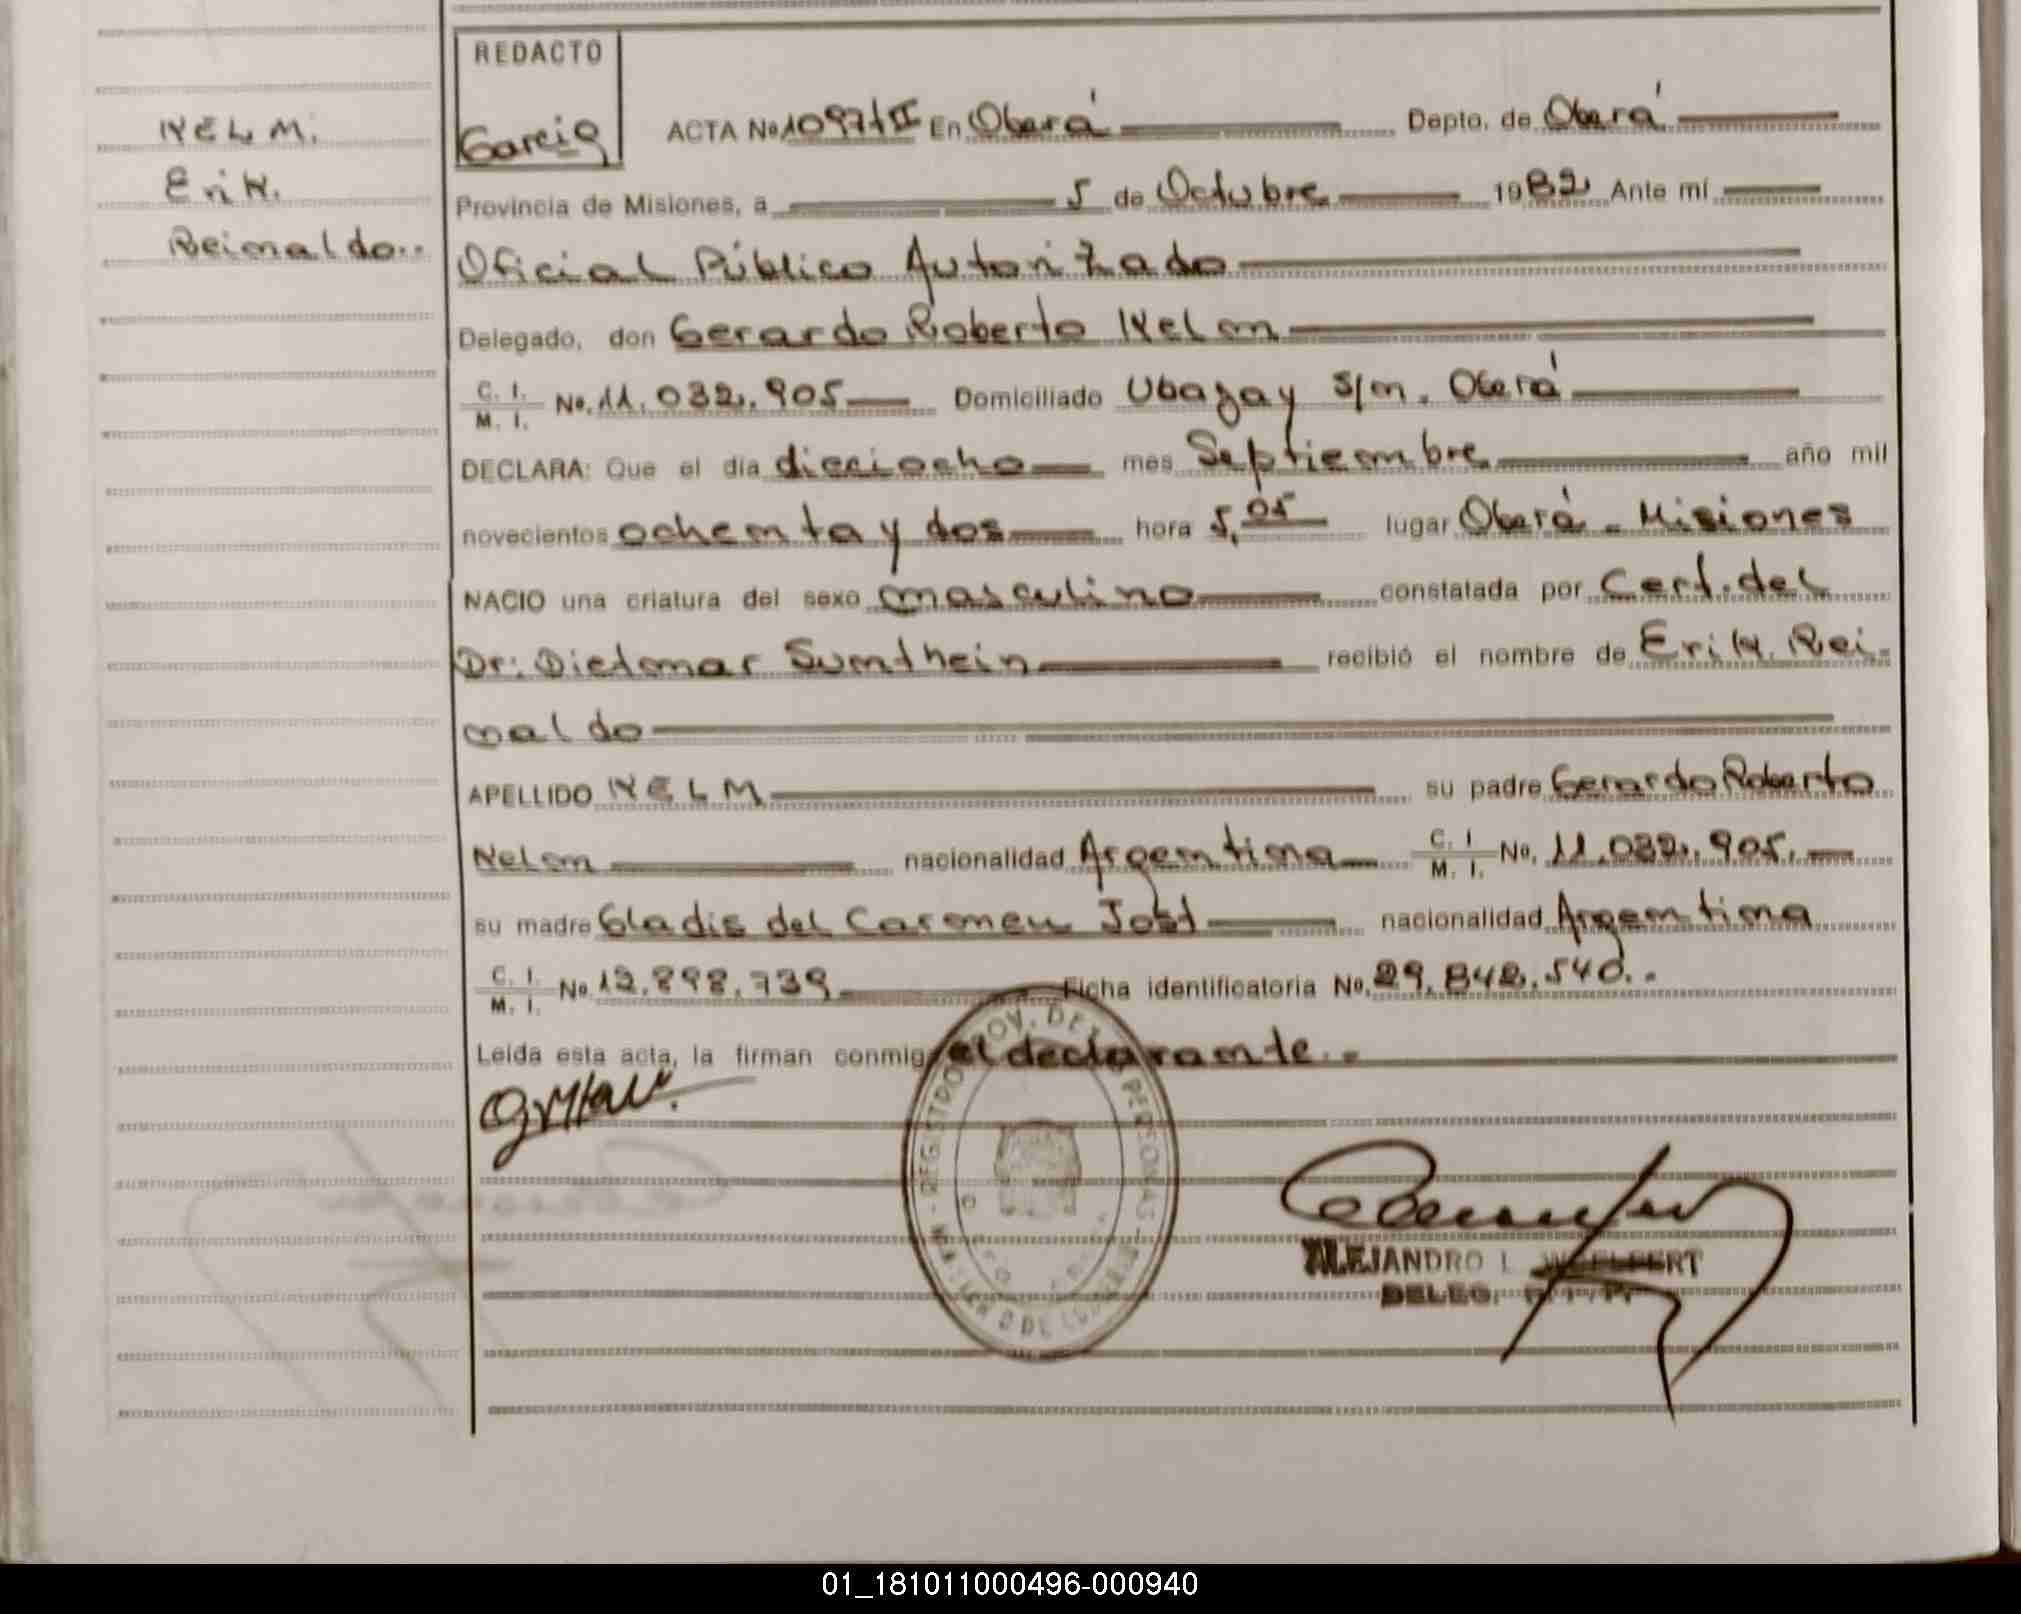 REDACTO
Garcia
KELM.
Erik.
Reinaldo..
ACTA No 1097/II En Oberá Depto. de Oberá
Provincia de Misiones, a 5 de Octubre 1982 Ante mí
Oficial Público Autorizado
Delegado, don Gerardo Roberto Kelm
C. I. M. I. No. 11.032.905 Domiciliado Ubajay s/n. Oberá
DECLARA: Que el día dieciocho mes Septiembre año mil
novecientos ochenta y dos hora 5,05 lugar Oberá - Misiones
NACIO una criatura del sexo masculino constatada por Cert. del
Dr: Dietmar Sumthein recibió el nombre de Erik. Rei-
naldo
APELLIDO KELM su padre Gerardo Roberto
Kelm nacionalidad Argentina C. I. M. I. No. 11.032.905.
su madre Gladis del Carmen Jost nacionalidad Argentina
C. I. M. I. No. 12.898.739 Ficha identificatoria No. 29.842.540..
Leída esta acta, la firman conmigo el declarante..
ALEJANDRO L.
DELEG.
01_181011000496-000940